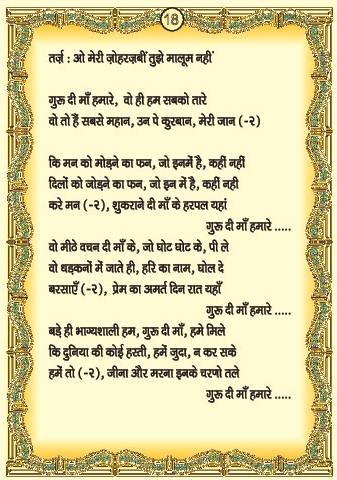 18
तर्ज़ : ओ मेरी ज़ोहरज़बीं तुझे मालूम नहीं
गुरू दी माँ हमारे, वो ही हम सबको तारे
वो तो हैं सबसे महान, उन पे कुरबान, मेरी जान (-२)
कि मन को मोड़ने का फन, जो इनमें है, कहीं नहीं
दिलों को जोड़ने का फन, जो इन में है, कहीं नही
करे मन (-२), शुकराने दी माँ के हरपल यहां
गुरू दी माँ हमारे .....
वो मीठे वचन दी माँ के, जो घोट घोट के, पी ले
वो धड़कनों में जाते ही, हरि का नाम, घोल दे
बरसाएँ (-२), प्रेम का अमर्त दिन रात यहाँ
गुरू दी माँ हमारे .....
बड़े ही भाग्यशाली हम, गुरू दी माँ, हमे मिले
कि दुनिया की कोई हस्ती, हमें जुदा, न कर सके
हमें तो (-२), जीना और मरना इनके चरणो तले
गुरू दी माँ हमारे .....